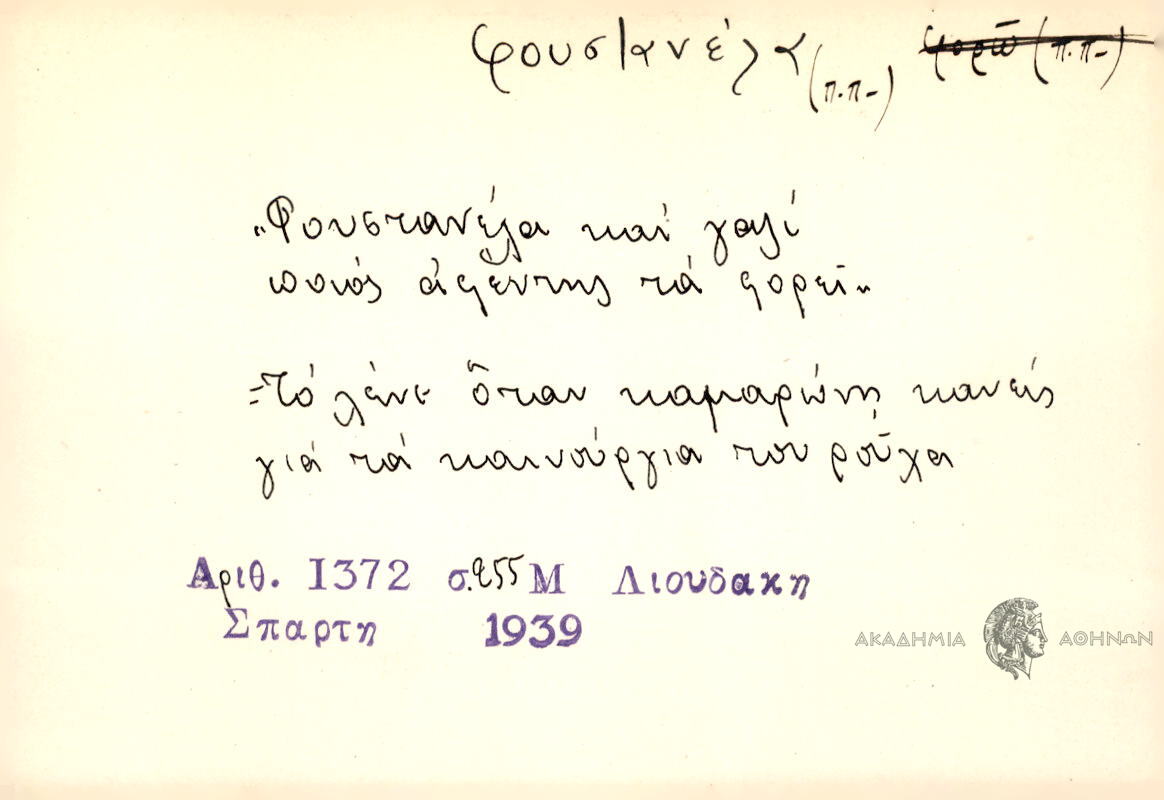 φουστανέλα (π.π-) φορῶ (π.π-)
„Φουστανέλα καί γαλί
ποιός ἀφέντης τά φορεῖ"
=Τό λένε ὅταν καμαρώνῃ κανείς
γιά τά καινούργια του ροῦχα
Αριθ. 1372 σ.255 Μ Λιουδακη
Σπαρτη 1939
ΑΚΑΔΗΜΙΑ ΑΘΗΝΩΝ